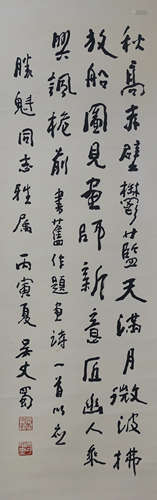 秋高赤壁撇鬱監天滿月微波拂
放船圖見畫師新意匠幽人乘
興諷椀前 書舊作題畫詩一首以应
勝魁同志雅属 丙寅夏吴丈蜀